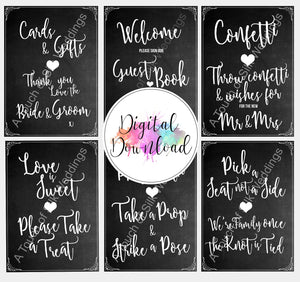 Cards
& Gifts
Thank you
Love the
Bride & Groom
XJ
Welcome
PLEASE SIGN OUR
Guest Book
Confetti
Throw confetti
& wishes for
FOR THE NEW
Mr & Mrs
Digital
Download
Love is
Sweet
Please Take
a Treat
Take a Prop
&
Strike a Pose
Pick a
Seat not a Side
We're Family once
the Knot is Tied
A Touch of
Weddings